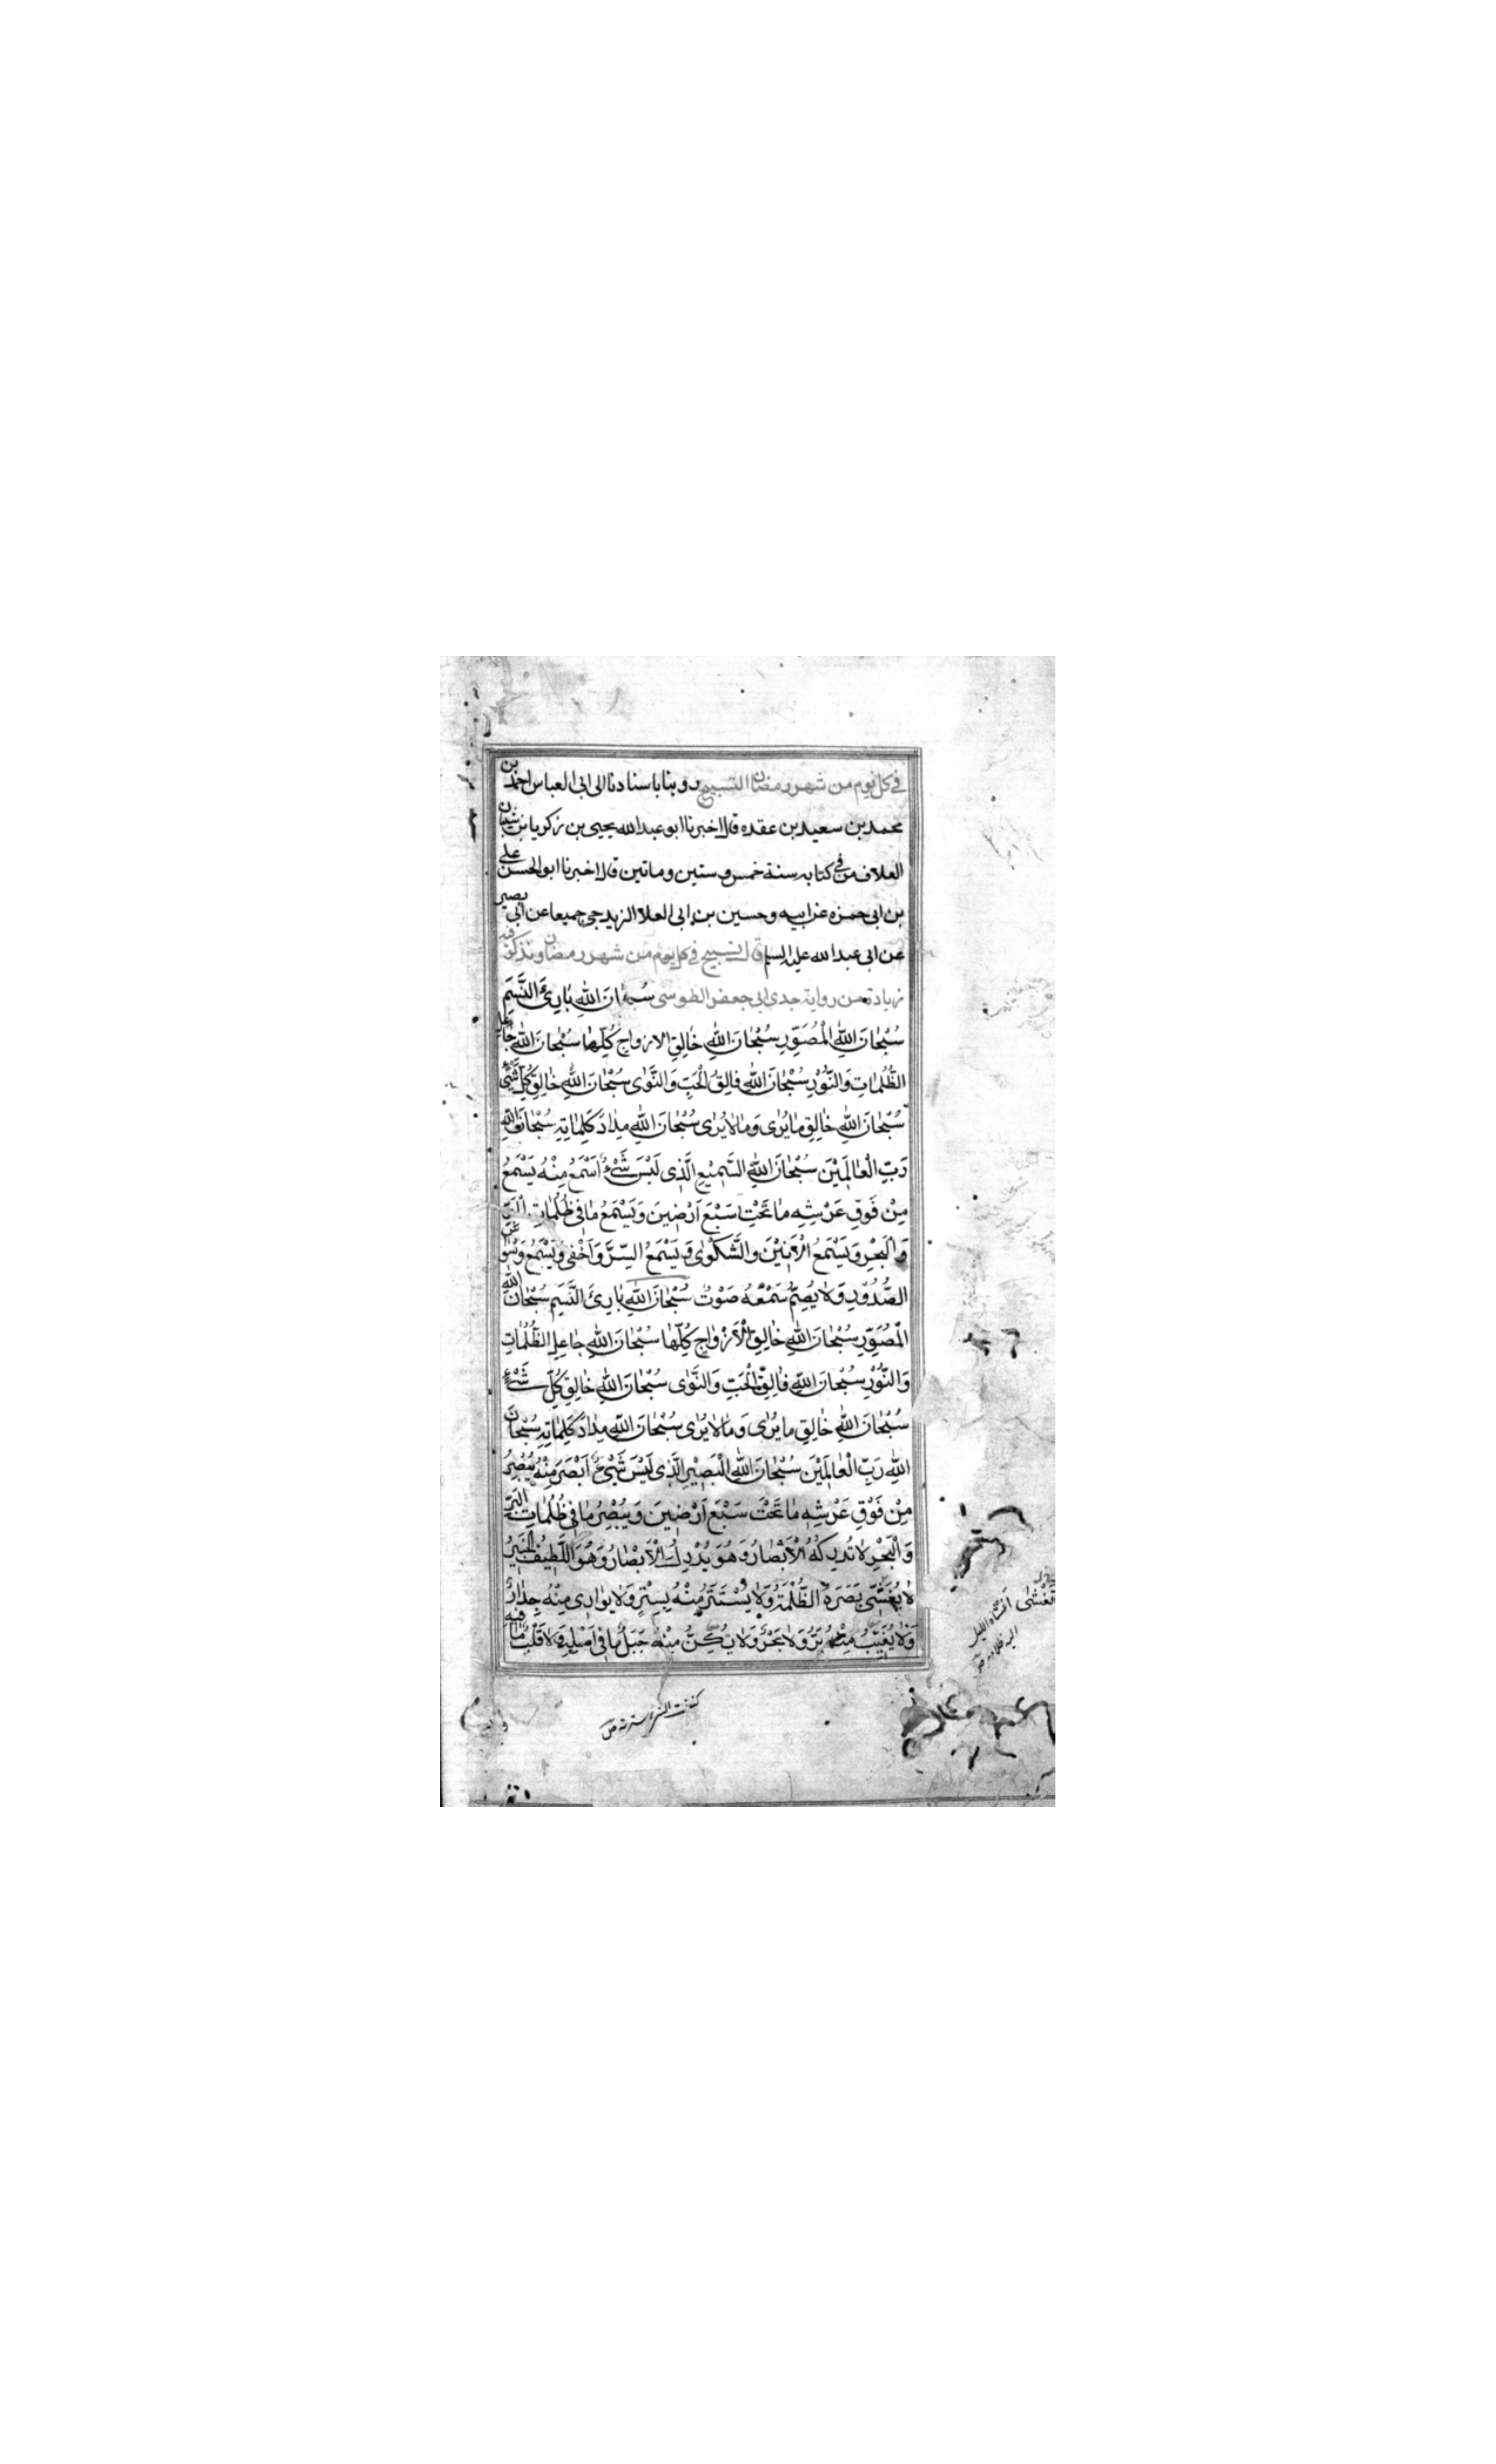 في كل يوم من شهر رمضان التسبيح روينا باسنادنا الى ابى العباس احمد بن
محمد بن سعيد بن عقده قال اخبرنا ابو عبد الله يحيى بن زكريا بن شيبان
العلاف من في كتابه سنة خمس و ستين وماتين قال اخبرنا ابو الحسن على
بن ابى حمزه عن ابيه وحسين بن ابى العلا الزيدجى جميعا عن ابى بصير
عن ابى عبد الله عليه السلم قال التسبيح في كل يوم من شهر رمضان ونذكر فيه
زيادة من رواية جدى ابى جعفر الطوسى سُبْحانَ اللهِ بارِئِ النَّسَمِ
سُبْحانَ اللهِ الْمُصَوِّرِ سُبْحانَ اللهِ خالِقِ الازواجِ كُلِّها سُبْحانَ اللهِ جاعِلِ
الظُّلُماتِ وَالنُّورِ سُبْحانَ اللهِ فالِقِ الْحَبِّ وَالنَّوى سُبْحانَ اللهِ خالِقِ كُلِّ شَيْءٍ
سُبْحانَ اللهِ خالِقِ ما يُرى وَما لا يُرى سُبْحانَ اللهِ مِدادَ كَلِماتِهِ سُبْحانَ اللهِ
رَبِّ الْعالَمِيْنَ سُبْحانَ اللهِ السَّمِيْعِ الَّذِى لَيْسَ شَيْءٌ اَسْمَعُ مِنْهُ يَسْمَعُ
مِنْ فَوْقِ عَرْشِهِ ما تَحْتَ سَبْعِ اَرْضِينَ وَيَسْمَعُ ما فى ظُلُماتِ الْبَرِّ
وَالْبَحْرِ وَيَسْمَعُ الْاَنِيْنَ وَالشَّكْوى وَيَسْمَعُ السِّرَّ وَاَخْفى وَيَسْمَعُ وَسْواسَ
الصُّدُوْرِ وَلا يُصِمُّ سَمْعَهُ صَوْتٌ سُبْحانَ اللهِ بارِئِ النَّسَمِ سُبْحانَ اللهِ
الْمُصَوِّرِ سُبْحانَ اللهِ خالِقِ الْاَزْواجِ كُلِّها سُبْحانَ اللهِ جاعِلِ الظُّلُماتِ
وَالنُّوْرِ سُبْحانَ اللهِ فالِقِ الْحَبِّ وَالنَّوى سُبْحانَ اللهِ خالِقِ كُلِّ شَيْءٍ
سُبْحانَ اللهِ خالِقِ ما يُرى وَما لا يُرى سُبْحانَ اللهِ مِدادَ كَلِماتِهِ سُبْحانَ
اللهِ رَبِّ الْعالَمِيْنَ سُبْحانَ اللهِ الْبَصِيْرِ الَّذِى لَيْسَ شَيْءٌ اَبْصَرَ مِنْهُ يُبْصِرُ
مِنْ فَوْقِ عَرْشِهِ ما تَحْتَ سَبْعِ اَرْضِينَ وَيُبْصِرُ ما فى ظُلُماتِ الْبَرِّ
وَالْبَحْرِ لا تُدْرِكُهُ الْاَبْصارُ وَهُوَ يُدْرِكُ الْاَبْصارَ وَهُوَ اللَّطِيفُ الْخَبِيْرُ
لا يُغَشّى بَصَرَهُ الظُّلْمَةُ وَلا يُسْتَتَرُ مِنْهُ بِسِتْرٍ وَلا يُوارِى مِنْهُ جِدارٌ
وَلا يُغَيِّبُ مِنْهُ بَرٌّ وَلا بَحْرٌ وَلا يُكِنُّ مِنْهُ جَبَلٌ ما فى اَصْلِهِ وَلا قَلْبٌ ما فيه
تغشى اغشاه الليل
البه ظلامه ص
كننت الشئ سترته ص